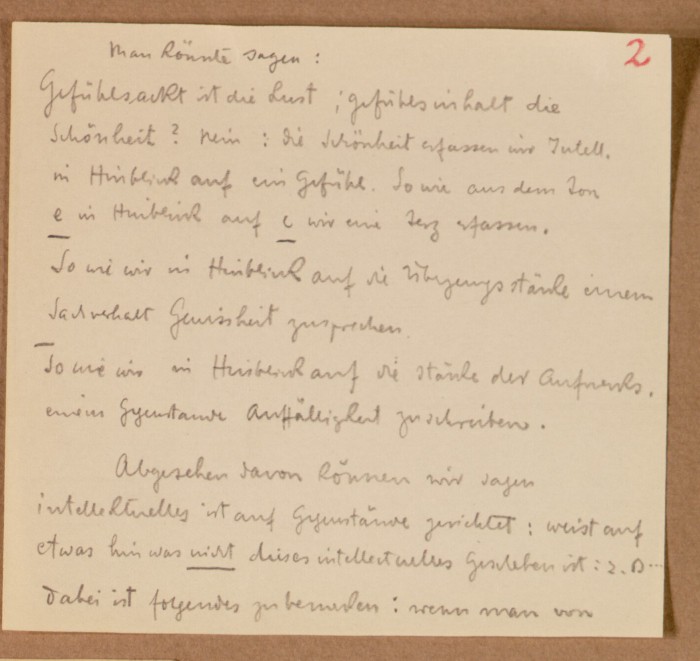 2
Man könnte sagen:
Gefühlsackt ist die Lust, gefühlsinhalt die
Schönheit? Nein: die Schönheit erfassen wir Intell.
in Hinblick auf ein Gefühl. So wie aus dem Ton
e in Hinblick auf c wir eine Terz erfassen.
So wie wir in Hinblick auf die Überzeugungsstärke einem
Sachverhalt Gewissheit zusprechen.
So wie wir in Hinblick auf die Stärke der Aufmerks.
einem Gegenstande Auffälligkeit zuschreiben.
Abgesehen davon können wir sagen
intellektuelles ist auf Gegenstände gerichtet: weist auf
etwas hin was nicht dieses intellectuelles Geschehen ist: z.B...
Dabei ist folgendes zu bemerken: wenn man von